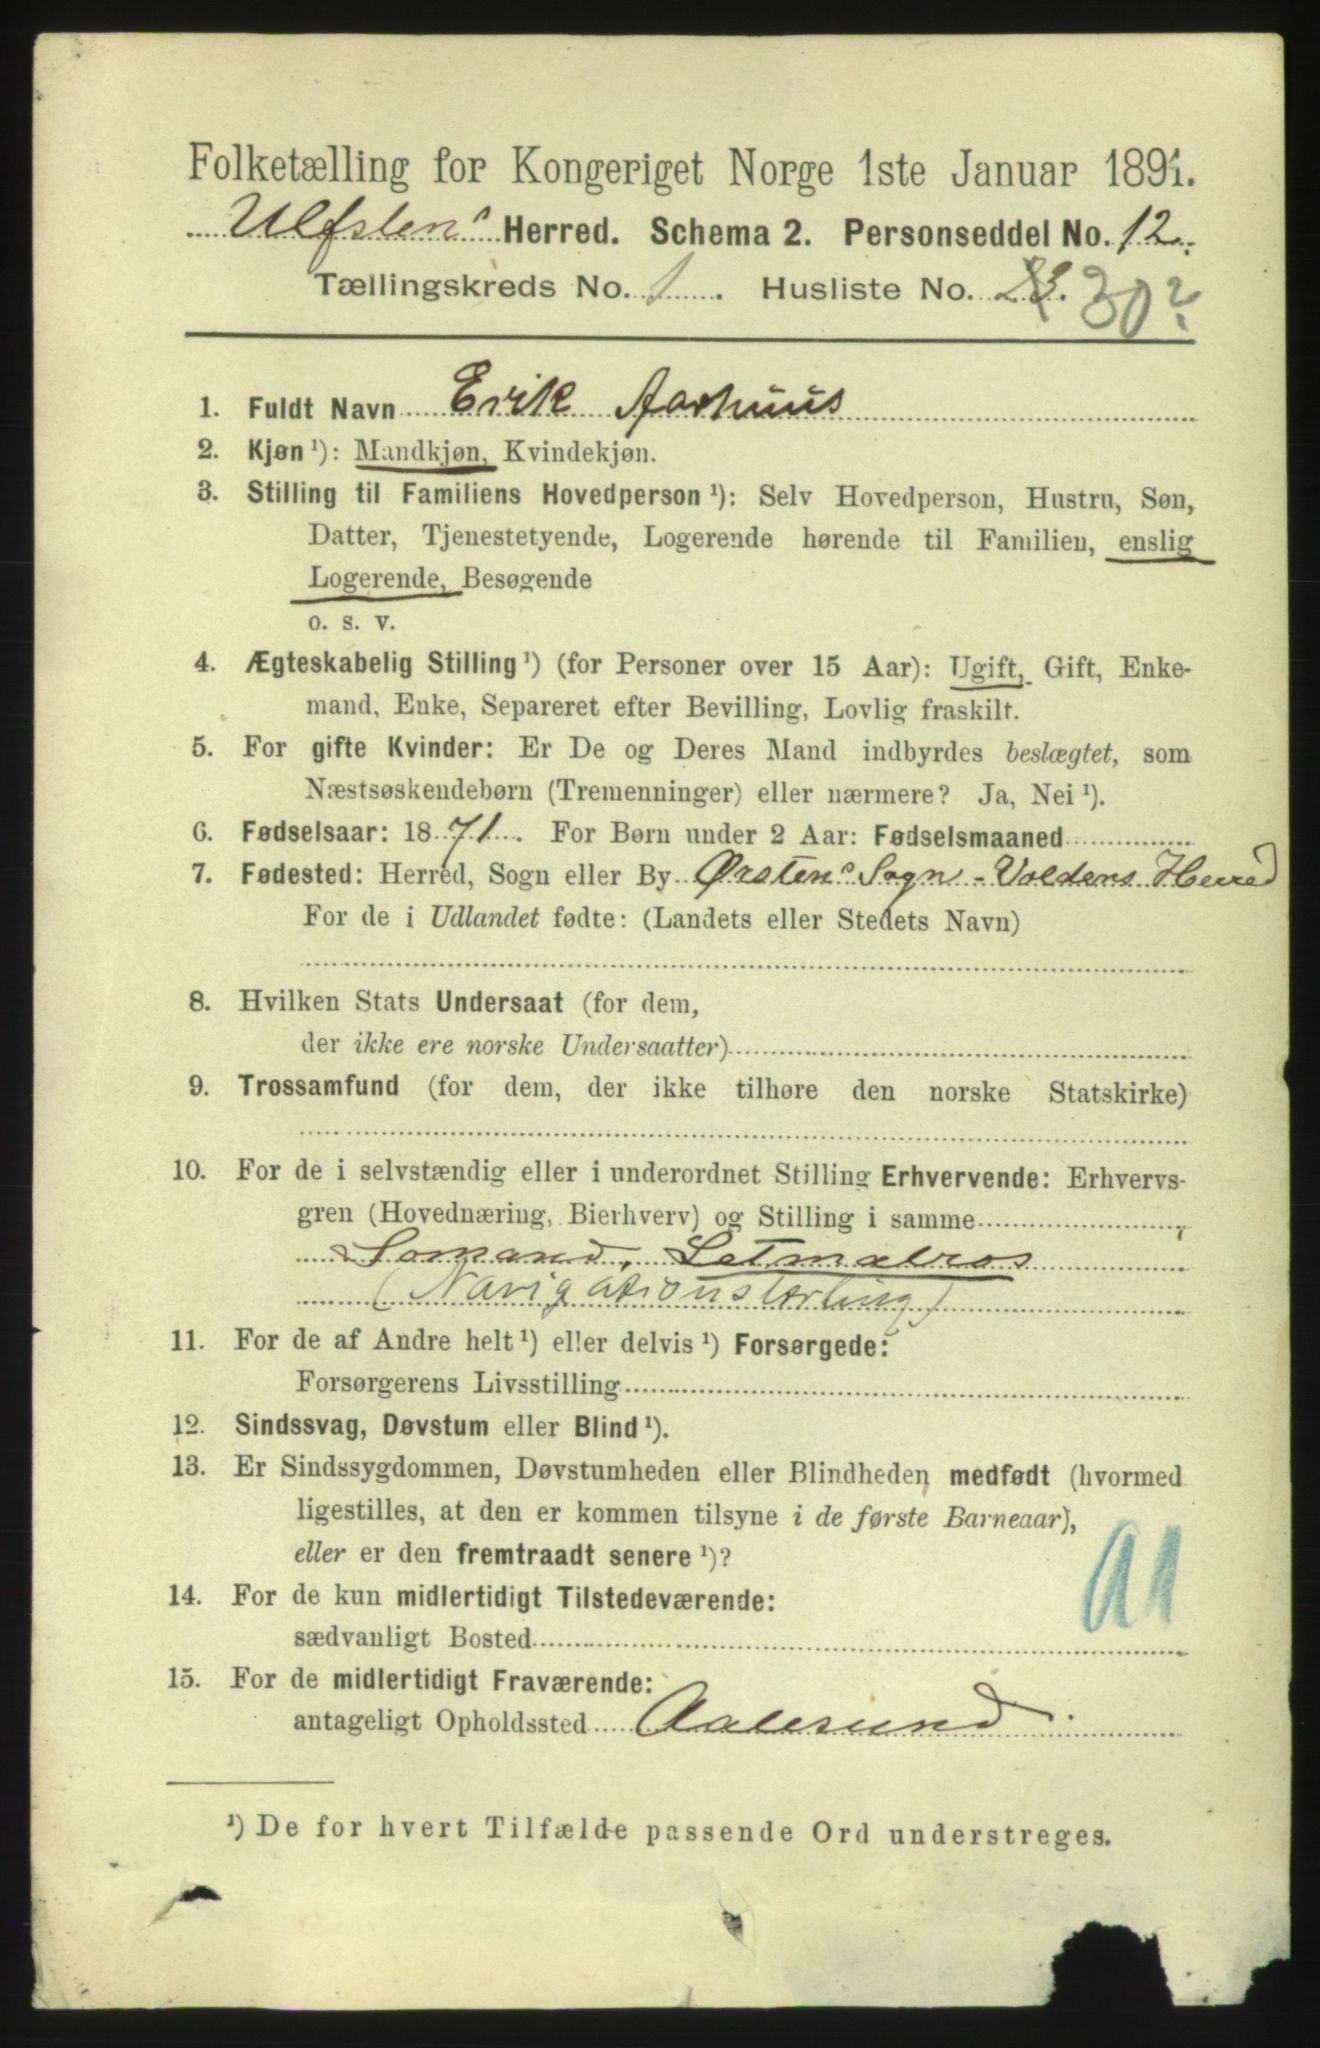 Folketælling for Kongeriget Norge 1ste Januar 1891.
Ulfstens Herred. Schema 2. Personseddel No. 12.
Tællingskreds No. 1. Husliste No. 23. 30?
1. Fuldt Navn Erik Aarhuus
2. Kjøn ¹): Mandkjøn, Kvindekjøn.
3. Stilling til Familiens Hovedperson ¹): Selv Hovedperson, Hustru, Søn,
Datter, Tjenestetyende, Logerende hørende til Familien, enslig
Logerende, Besøgende
o. s. v.
4. Ægteskabelig Stilling ¹) (for Personer over 15 Aar): Ugift, Gift, Enke-
mand, Enke, Separeret efter Bevilling, Lovlig fraskilt.
5. For gifte Kvinder: Er De og Deres Mand indbyrdes beslægtet, som
Næstsøskendebørn (Tremenninger) eller nærmere? Ja, Nei ¹).
6. Fødselsaar: 1871. For Børn under 2 Aar: Fødselsmaaned
7. Fødested: Herred, Sogn eller By Ørstens Sogn - Voldens Herred
For de i Udlandet fødte: (Landets eller Stedets Navn)
8. Hvilken Stats Undersaat (for dem,
der ikke ere norske Undersaatter)
9. Trossamfund (for dem, der ikke tilhøre den norske Statskirke)
10. For de i selvstændig eller i underordnet Stilling Erhvervende: Erhvervs-
gren (Hovednæring, Bierhverv) og Stilling i samme
Sømand, Letmatros
(Navigationslærling)
11. For de af Andre helt ¹) eller delvis ¹) Forsørgede:
Forsørgerens Livsstilling
12. Sindssvag, Døvstum eller Blind ¹).
13. Er Sindssygdommen, Døvstumheden eller Blindheden medfødt (hvormed
ligestilles, at den er kommen tilsyne i de første Barneaar),
eller er den fremtraadt senere ¹)?
14. For de kun midlertidigt Tilstedeværende:
sædvanligt Bosted
15. For de midlertidigt Fraværende:
antageligt Opholdssted Aalesund
¹) De for hvert Tilfælde passende Ord understreges.